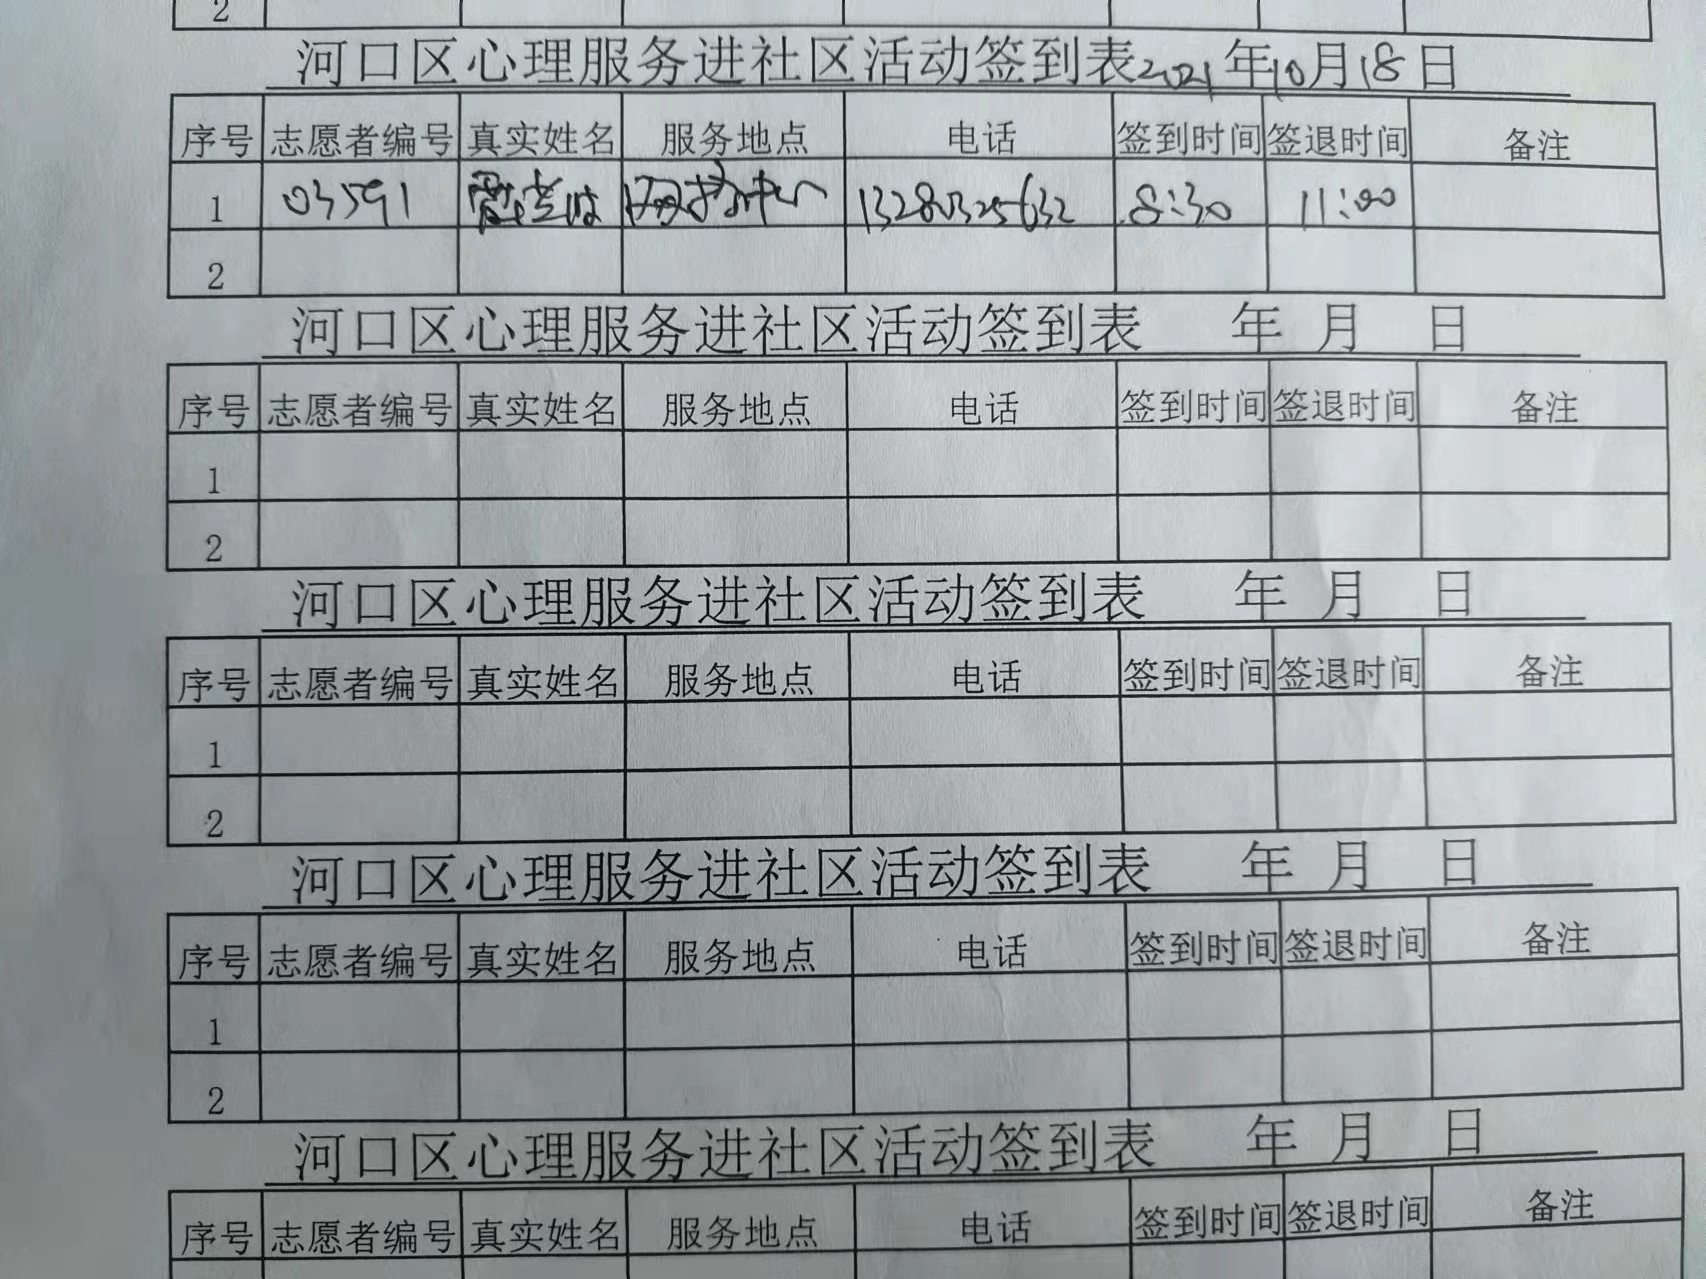 2
河口区心理服务进社区活动签到表2021年10月18日
序号 志愿者编号 真实姓名 服务地点 电话 签到时间 签退时间 备注
1 03591 13280325632 8:30 11:00
2
河口区心理服务进社区活动签到表 年 月 日
序号 志愿者编号 真实姓名 服务地点 电话 签到时间 签退时间 备注
1
2
河口区心理服务进社区活动签到表 年 月 日
序号 志愿者编号 真实姓名 服务地点 电话 签到时间 签退时间 备注
1
2
河口区心理服务进社区活动签到表 年 月 日
序号 志愿者编号 真实姓名 服务地点 电话 签到时间 签退时间 备注
1
2
河口区心理服务进社区活动签到表 年 月 日
序号 志愿者编号 真实姓名 服务地点 电话 签到时间 签退时间 备注